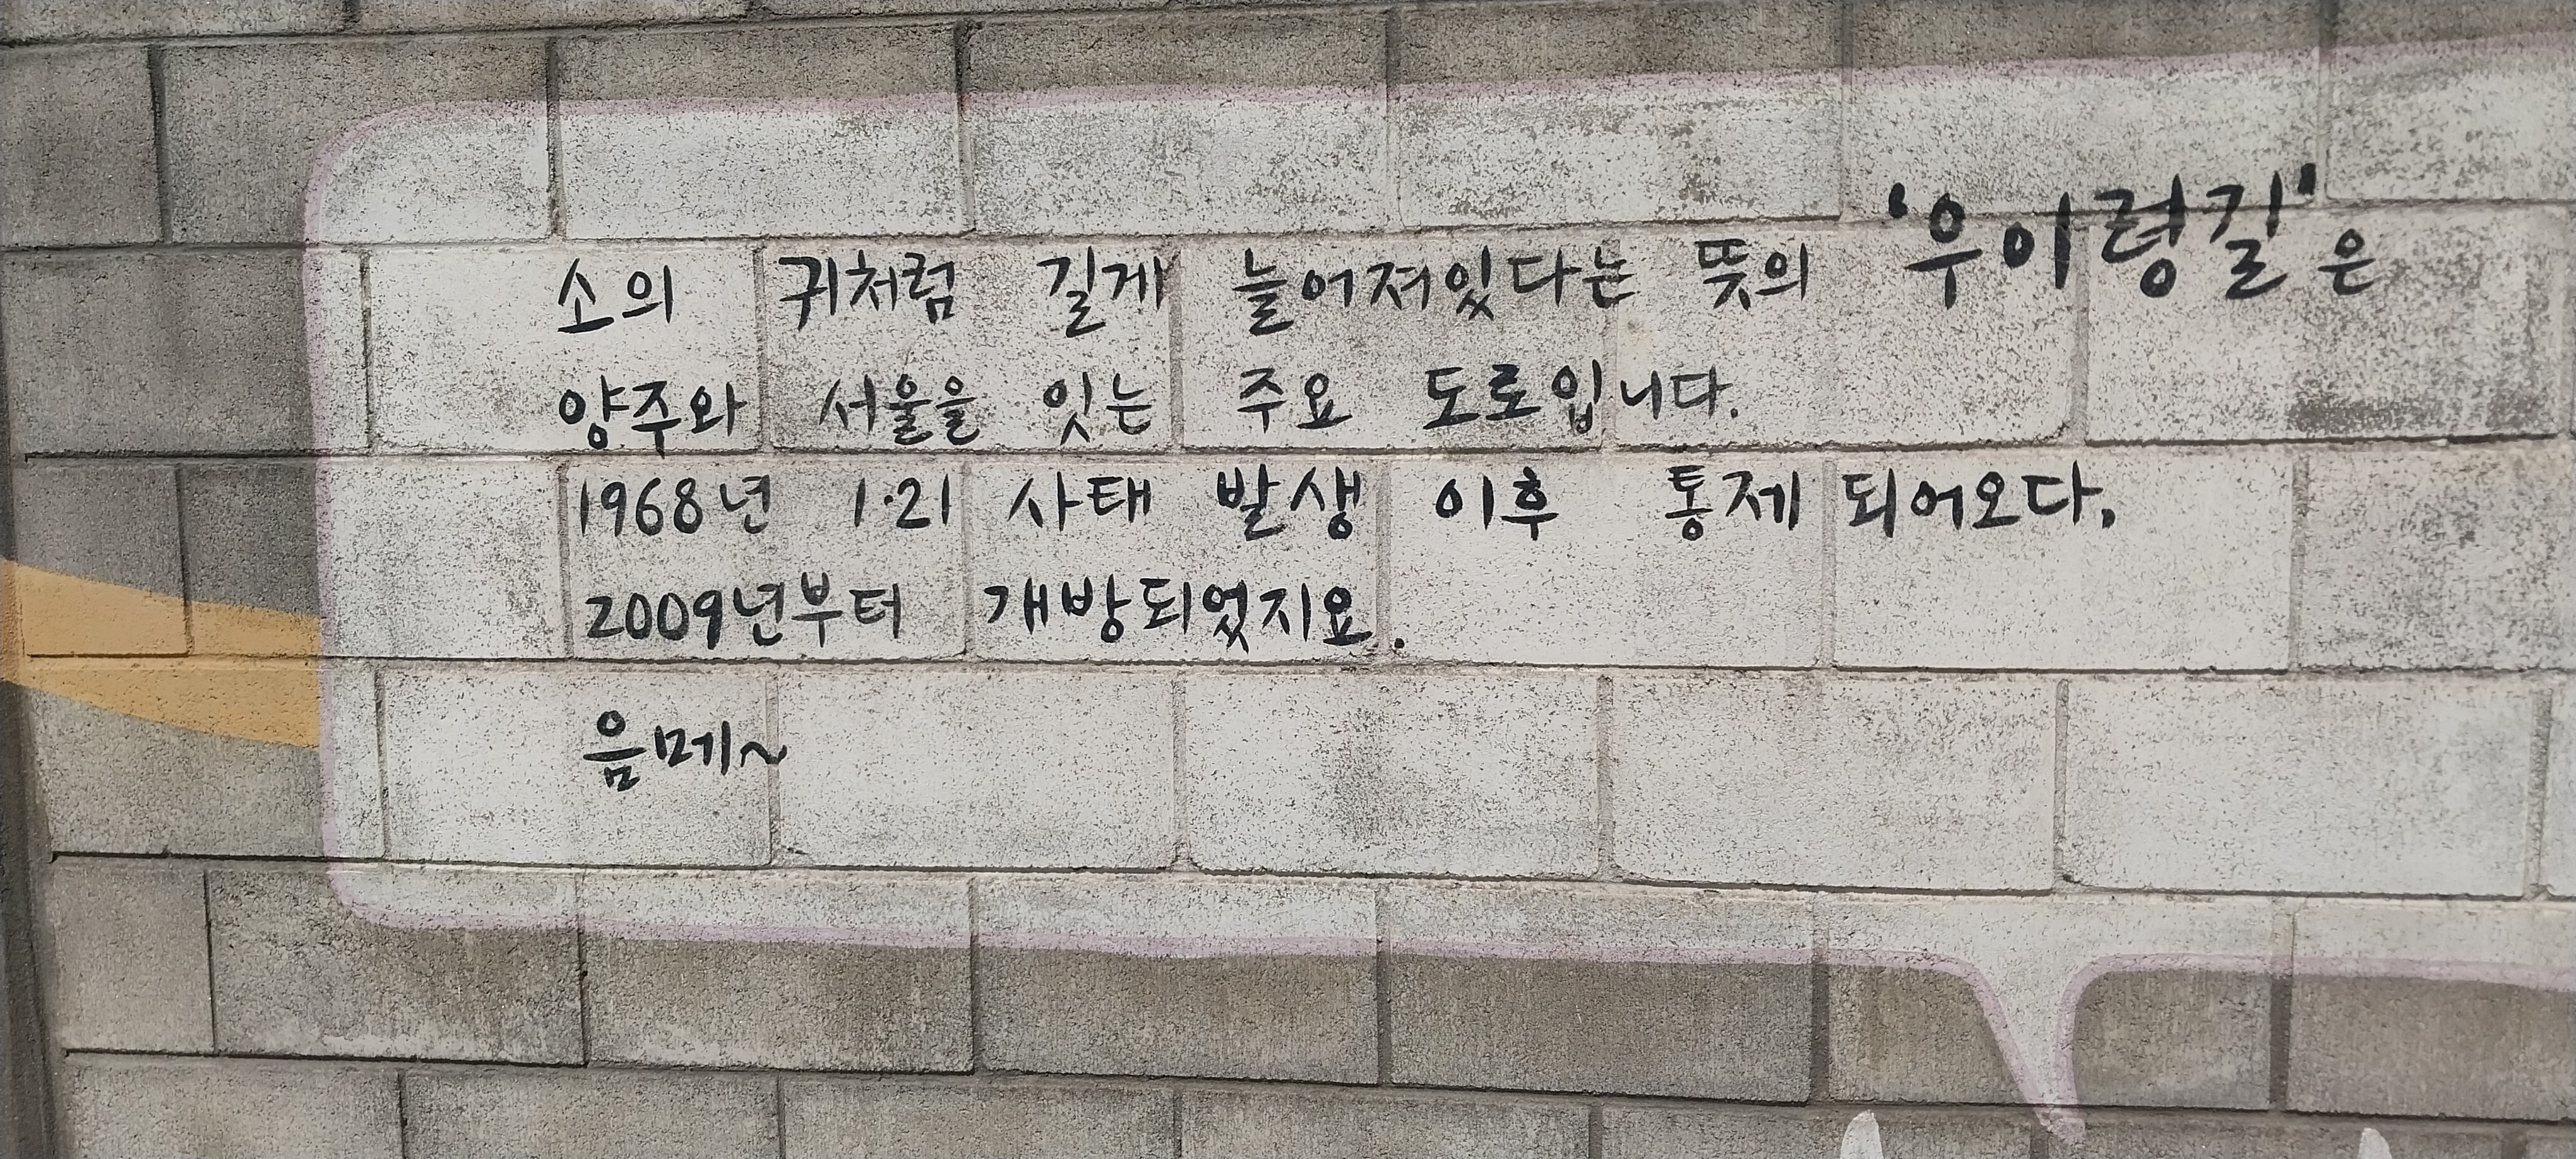 소의 귀처럼 길게 늘어져있다는 뜻의 '우이령길'은
양주와 서울을 잇는 주요 도로입니다.
1968년 1·21 사태 발생 이후 통제 되어오다,
2009년부터 개방되었지요.
음메~